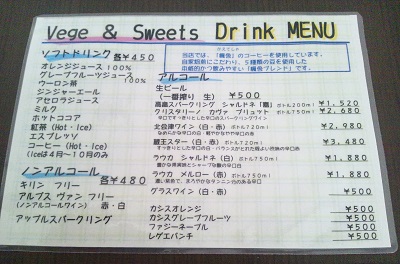 Vege & Sweets Drink MENU
ソフトドリンク 各¥450
オレンジジュース 100%
グレープフルーツジュース 100%
ウーロン茶
ジンジャーエール
アセロラジュース
ミルク
ホットココア
紅茶 (Hot・Ice)
エスプレッソ
コーヒー (Hot・Ice)
(Iceは4月~10月のみ)
ノンアルコール 各¥480
キリン フリー
アルプス ヴァン フリー
(ノンアルコールワイン) 赤・白
アップルスパークリング
のコーヒーを使用しています。
自家焙煎にこだわり、5種類の豆を使した
本格的かつ飲みやすい ブレンド」です。
アルコール
生ビール
(一番搾り 生) ¥500
高畠スパークリング シャルドネ ボトル200ml ¥1,520
クリスタリーノ カヴァ ブリュット ボトル750ml ¥2,680
北会津ワイン (白・赤) ボトル720ml ¥2,980
蔵王スター (白・赤) ボトル720ml ¥3,480
ラウカ シャルドネ (白) ボトル750ml ¥1,880
ラウカ メルロー (赤) ボトル750ml ¥1,880
グラスワイン (白・赤) ¥500
カシスオレンジ ¥500
カシスグレープフルーツ ¥500
ファジーネーブル ¥500
レゲエパンチ ¥500